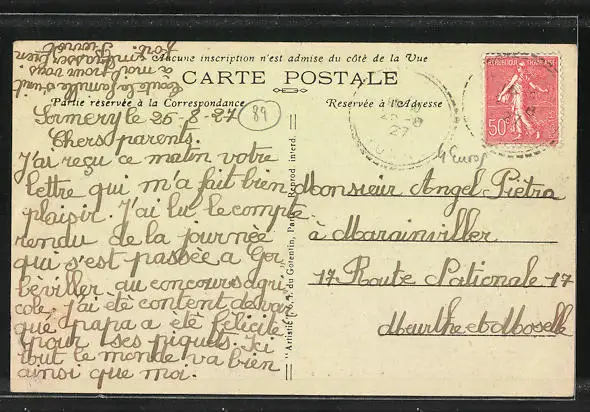 Aucune inscription n'est admise du côté de la Vue
CARTE POSTALE
Partie réservée à la Correspondance
Réservée à l'Adresse
RÉPUBLIQUE FRANÇAISE
50c
27
89
Sormery le 25-8-27
Chers parents.
J'ai reçu ce matin votre
lettre qui m'a fait bien
plaisir. J'ai lu le compte
rendu de la journée
qui s'est passée a Ger
béviller au concours agri
cole. j'ai été content de voir
que papa a été félicité
pour ses piquets. Ici
tout le monde va bien
ainsi que moi.
Toute la famille s'unit
à moi pour vous
embrasser bien
fort.
Pierrot
"Artistic" du Cotentin, Reprod. interd.
4 Euros
Monsieur Angel Piètra
à Marainviller
17 Route Nationale 17
Meurthe et Moselle